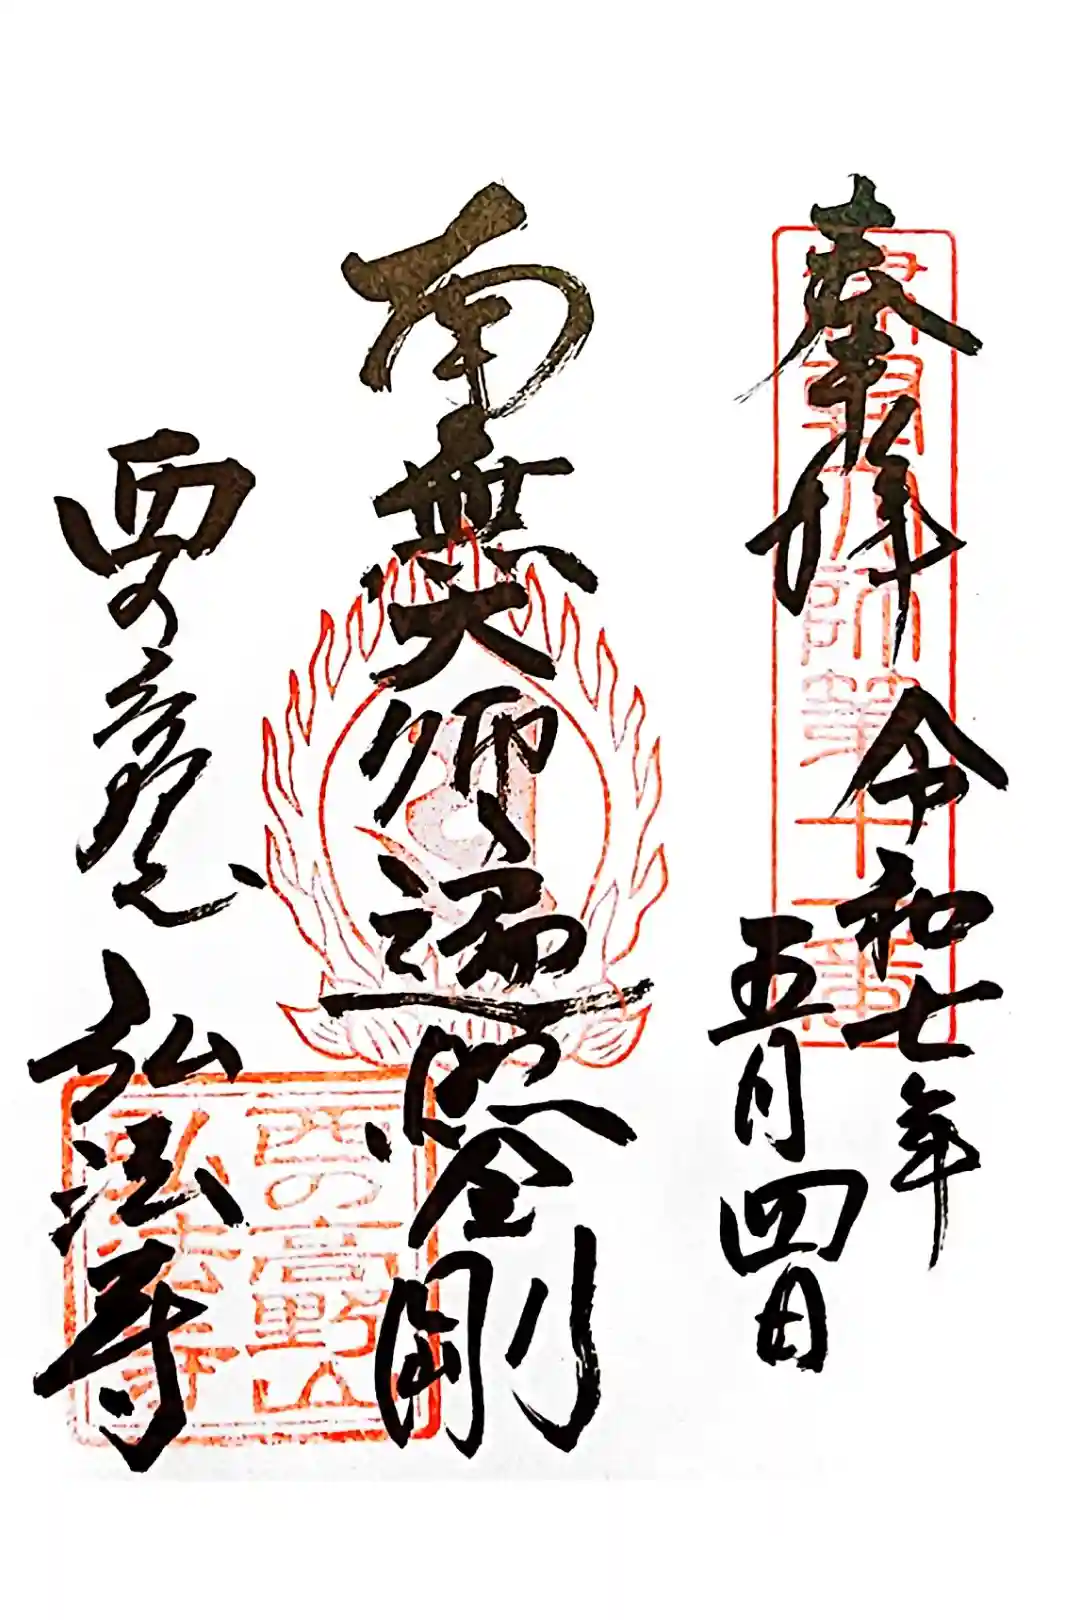 奉拝
所第十一番
令和七年
五月四日
南無大師遍照金剛
西の高野山 弘法寺
西の高野山
弘法寺